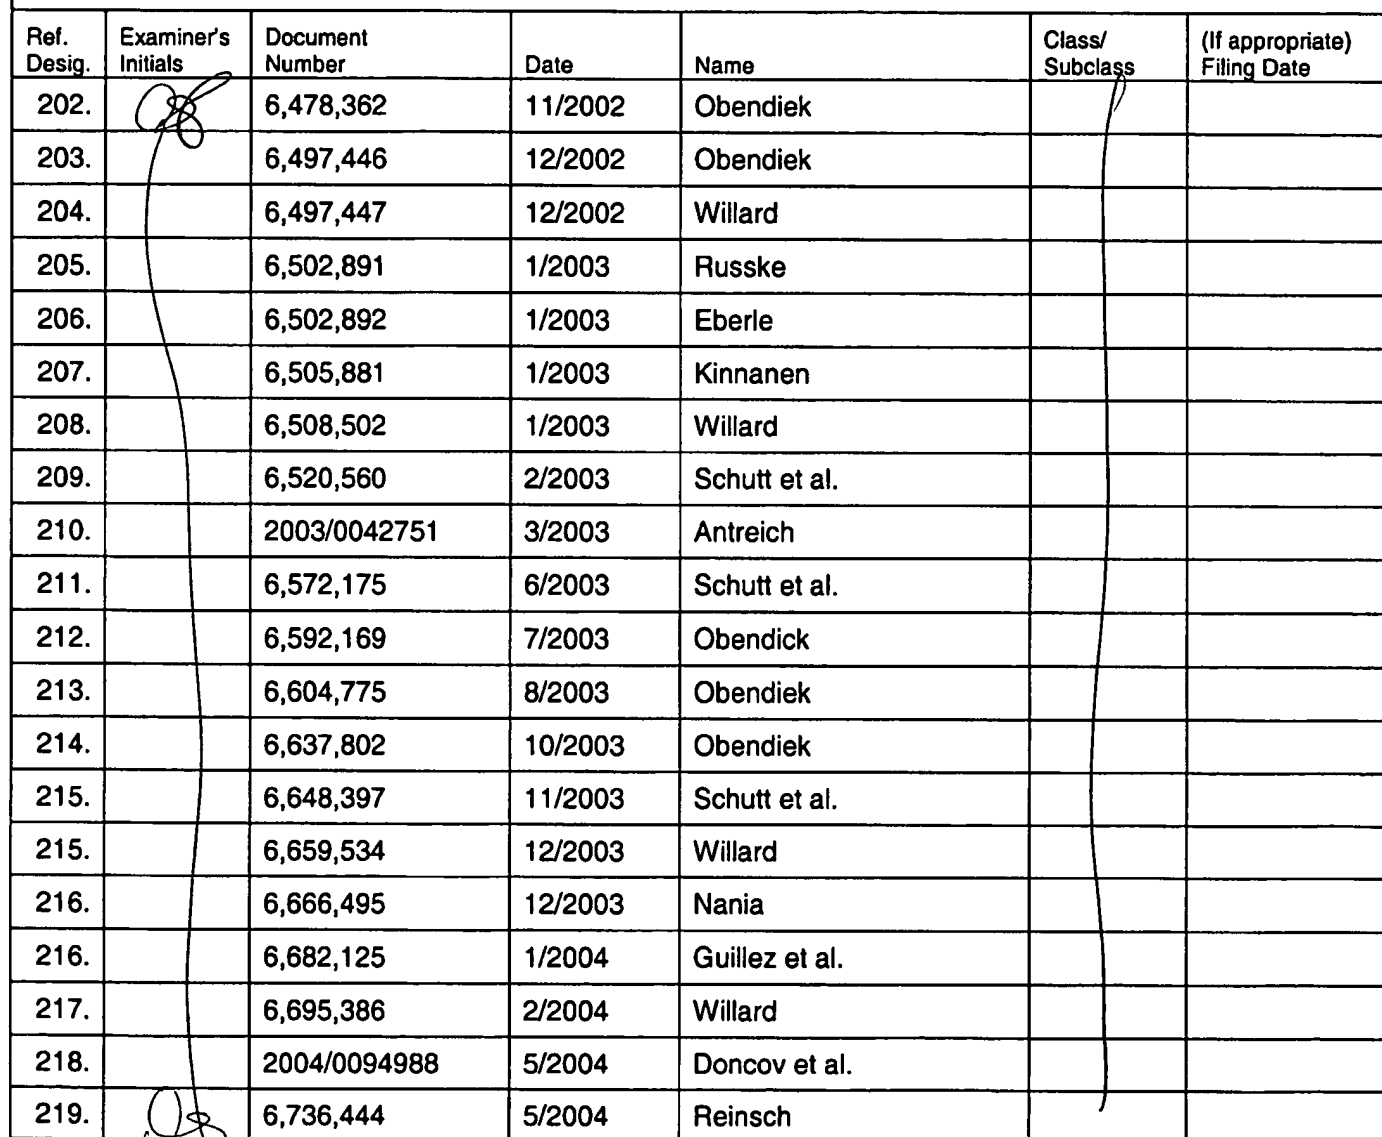 Ref. Desig. Examiner's Initials Document Number Date Name Class/ Subclass (If appropriate) Filing Date
202. 6,478,362 11/2002 Obendiek
203. 6,497,446 12/2002 Obendiek
204. 6,497,447 12/2002 Willard
205. 6,502,891 1/2003 Russke
206. 6,502,892 1/2003 Eberle
207. 6,505,881 1/2003 Kinnanen
208. 6,508,502 1/2003 Willard
209. 6,520,560 2/2003 Schutt et al.
210. 2003/0042751 3/2003 Antreich
211. 6,572,175 6/2003 Schutt et al.
212. 6,592,169 7/2003 Obendick
213. 6,604,775 8/2003 Obendiek
214. 6,637,802 10/2003 Obendiek
215. 6,648,397 11/2003 Schutt et al.
215. 6,659,534 12/2003 Willard
216. 6,666,495 12/2003 Nania
216. 6,682,125 1/2004 Guillez et al.
217. 6,695,386 2/2004 Willard
218. 2004/0094988 5/2004 Doncov et al.
219. 6,736,444 5/2004 Reinsch